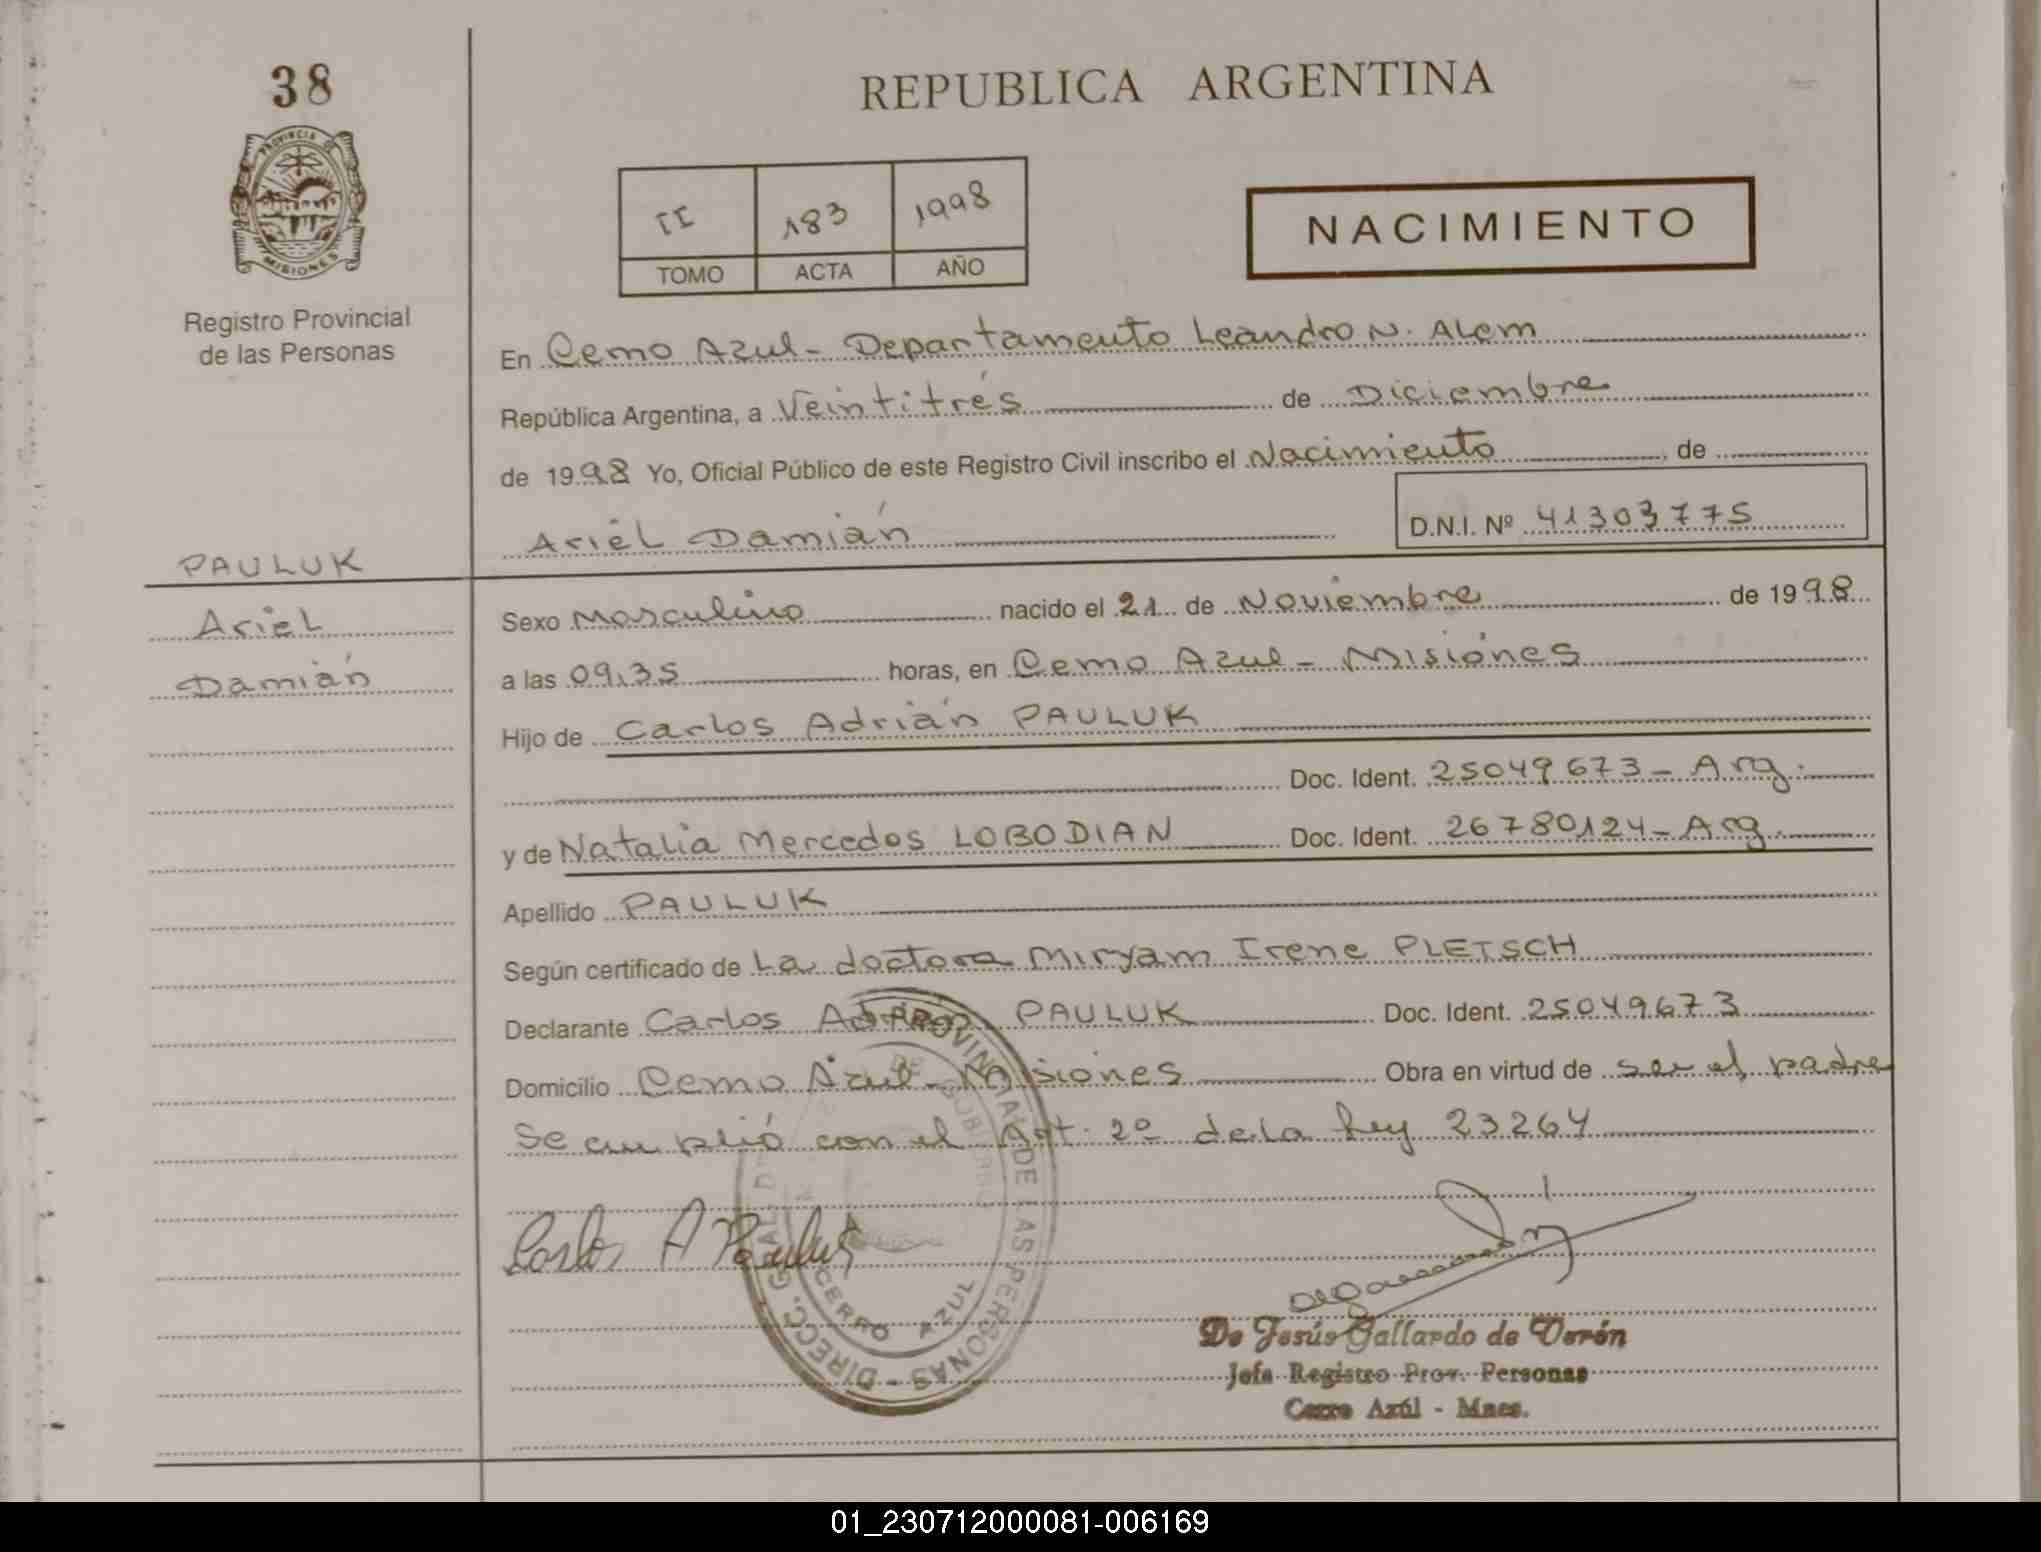 38
PROVINCIA DE
MISIONES
Registro Provincial
de las Personas
REPUBLICA ARGENTINA
II 183 1998
TOMO ACTA AÑO
NACIMIENTO
En Cerro Azul - Departamento Leandro N. Alem
República Argentina, a Veintitrés de Diciembre
de 1998 Yo, Oficial Público de este Registro Civil inscribo el Nacimiento, de
Ariel Damián D.N.I. Nº 41303775
PAULUK
Ariel
Damián
Sexo Masculino nacido el 21 de Noviembre de 1998
a las 09,35 horas, en Cerro Azul - Misiones
Hijo de Carlos Adrián PAULUK
Doc. Ident. 25049673 - Arg.
y de Natalia Mercedes LOBODIAN Doc. Ident. 26780124 - Arg.
Apellido PAULUK
Según certificado de La doctora Miryam Irene PLETSCH
Declarante Carlos Adrián PAULUK Doc. Ident. 25049673
Domicilio Cerro Azul - Misiones Obra en virtud de ser el padre
Se cumplió con el Art. 2º de la Ley 23264
Carlos A Pauluk
DIRECC. GRAL. PROVINCIAL DE LAS PERSONAS
CERRO AZUL
De Jesús Gallardo de Verón
Jefa Registro Prov. Personas
Cerro Azúl - Mnes.
01_230712000081-006169